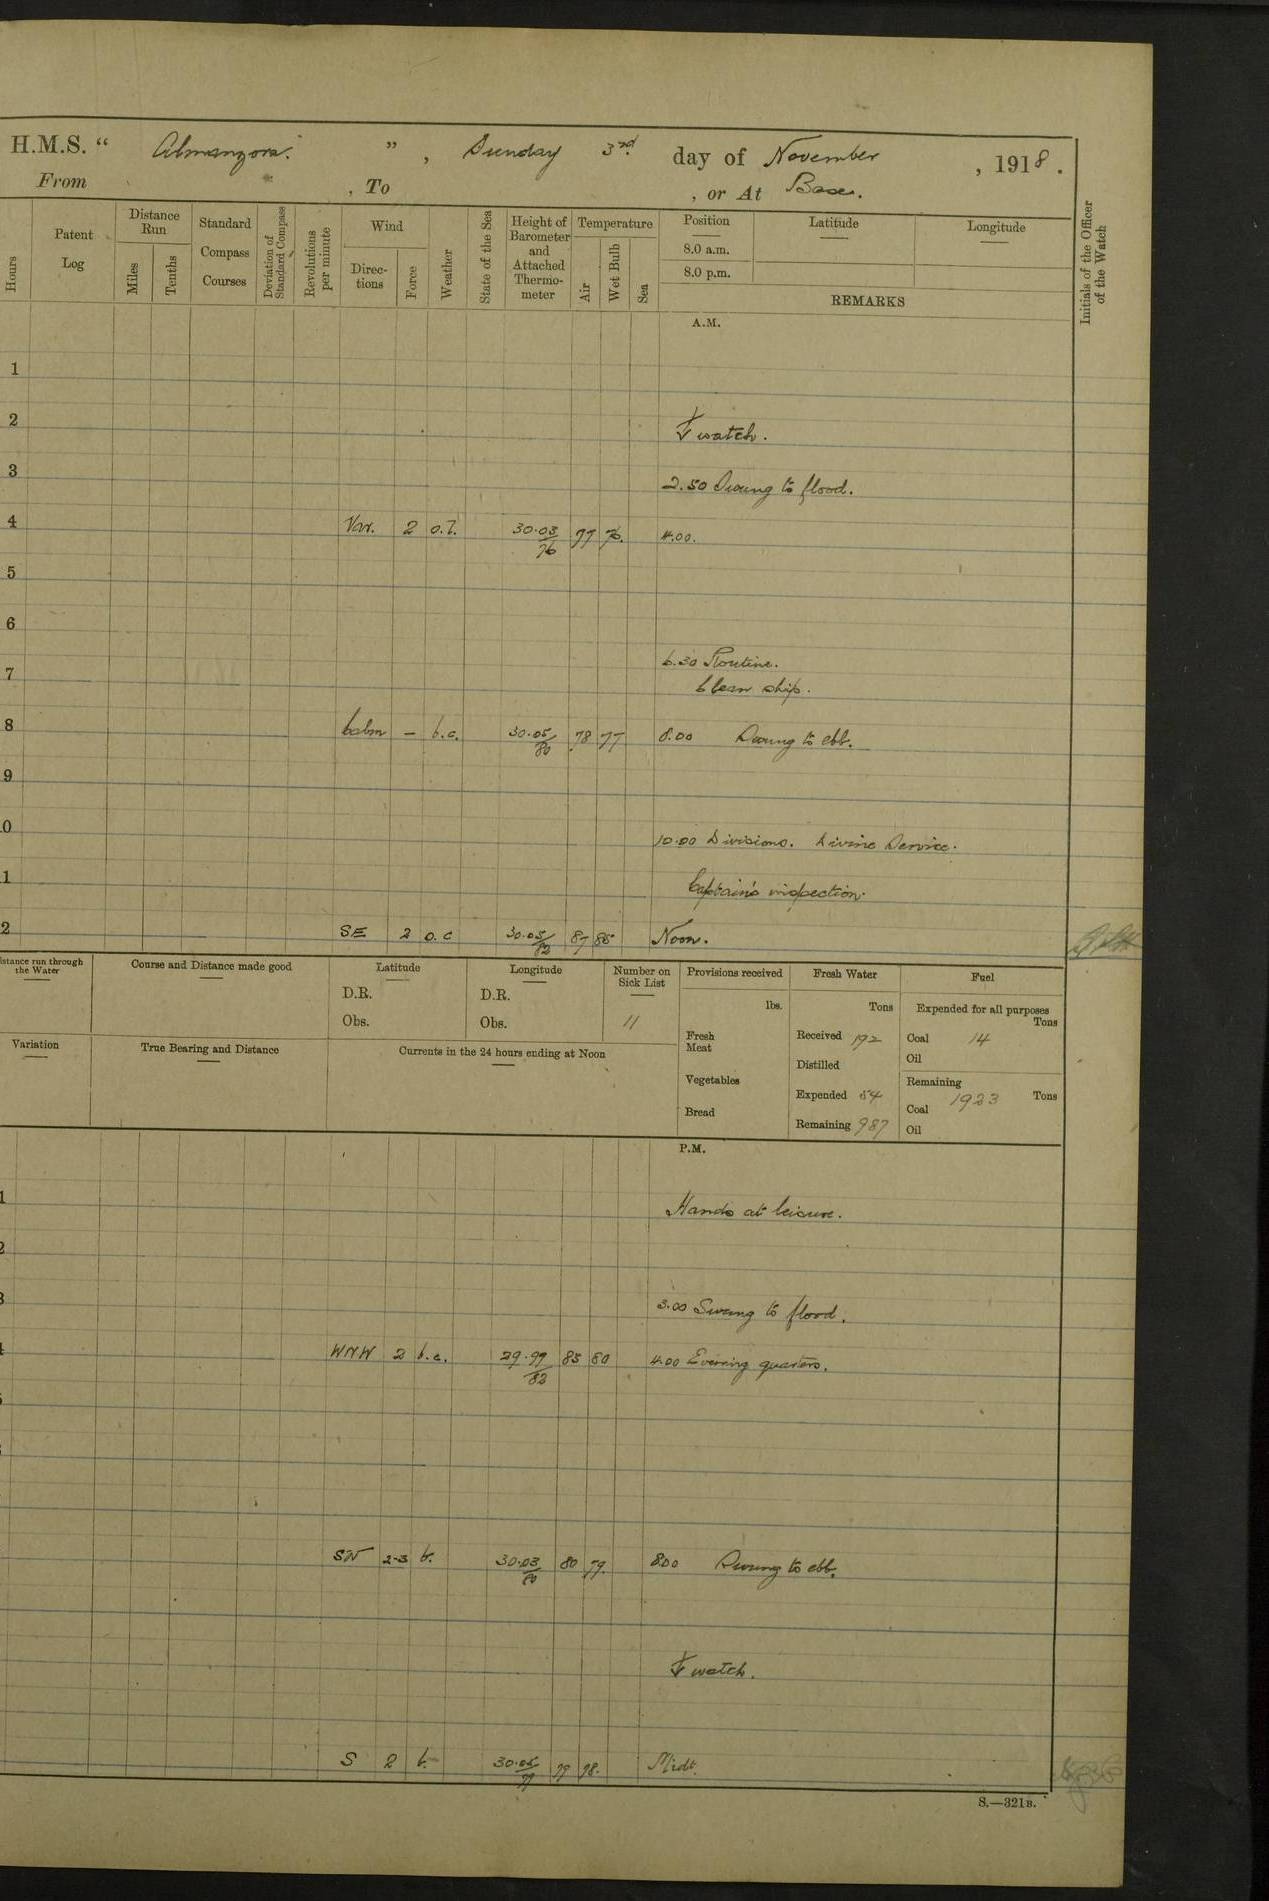 H.M.S. “ Almanzora. ” , Sunday 3rd. day of November , 1918 .
From , To , or At Base.
Hours
Patent Log
Distance Run
Miles
Tenths
Standard Compass Courses
Deviation of Standard Compass
Revolutions per minute
Wind
Direc-tions
Force
Weather
State of the Sea
Height of Barometer and Attached Thermo-meter
Temperature
Air
Wet Bulb
Sea
Position
Latitude
Longitude
8.0 a.m.
8.0 p.m.
REMARKS
Initials of the Officer of the Watch
A.M.
1
2
watch.
3 2.50 Swung to flood.
4 Var. 2 30.03/76 77 76. 4.00.
5
6
6.30 Routine.
7 Clean ship.
8 Calm – b.c. 30.05/80 78 77 8.00 Swung to ebb.
9
0 10.00 Divisions. Divine Service.
1 Captain's inspection.
2 SE 2 o.c 30.05/82 87 85 Noon.
istance run through the Water
Course and Distance made good
Latitude
D.R.
Obs.
Longitude
D.R.
Obs.
Number on Sick List
11
Provisions received
lbs.
Fresh Meat
Vegetables
Bread
Fresh Water
Tons
Received 192
Distilled
Expended 54
Remaining 987
Fuel
Expended for all purposes
Tons
Coal 14
Oil
Remaining
Tons
Coal 1923
Oil
Variation
True Bearing and Distance
Currents in the 24 hours ending at Noon
P.M.
1 Hands at leisure.
2
3 3.00 Swung to flood.
4 WNW 2 b.c. 29.99/82 85 80 4.00 Evening quarters.
SW 2-3 b. 30.03/80 80 79. 8.00 Swung to ebb.
watch.
S 2 b. 30.05/79 79 78. Midt.
S.—321B.